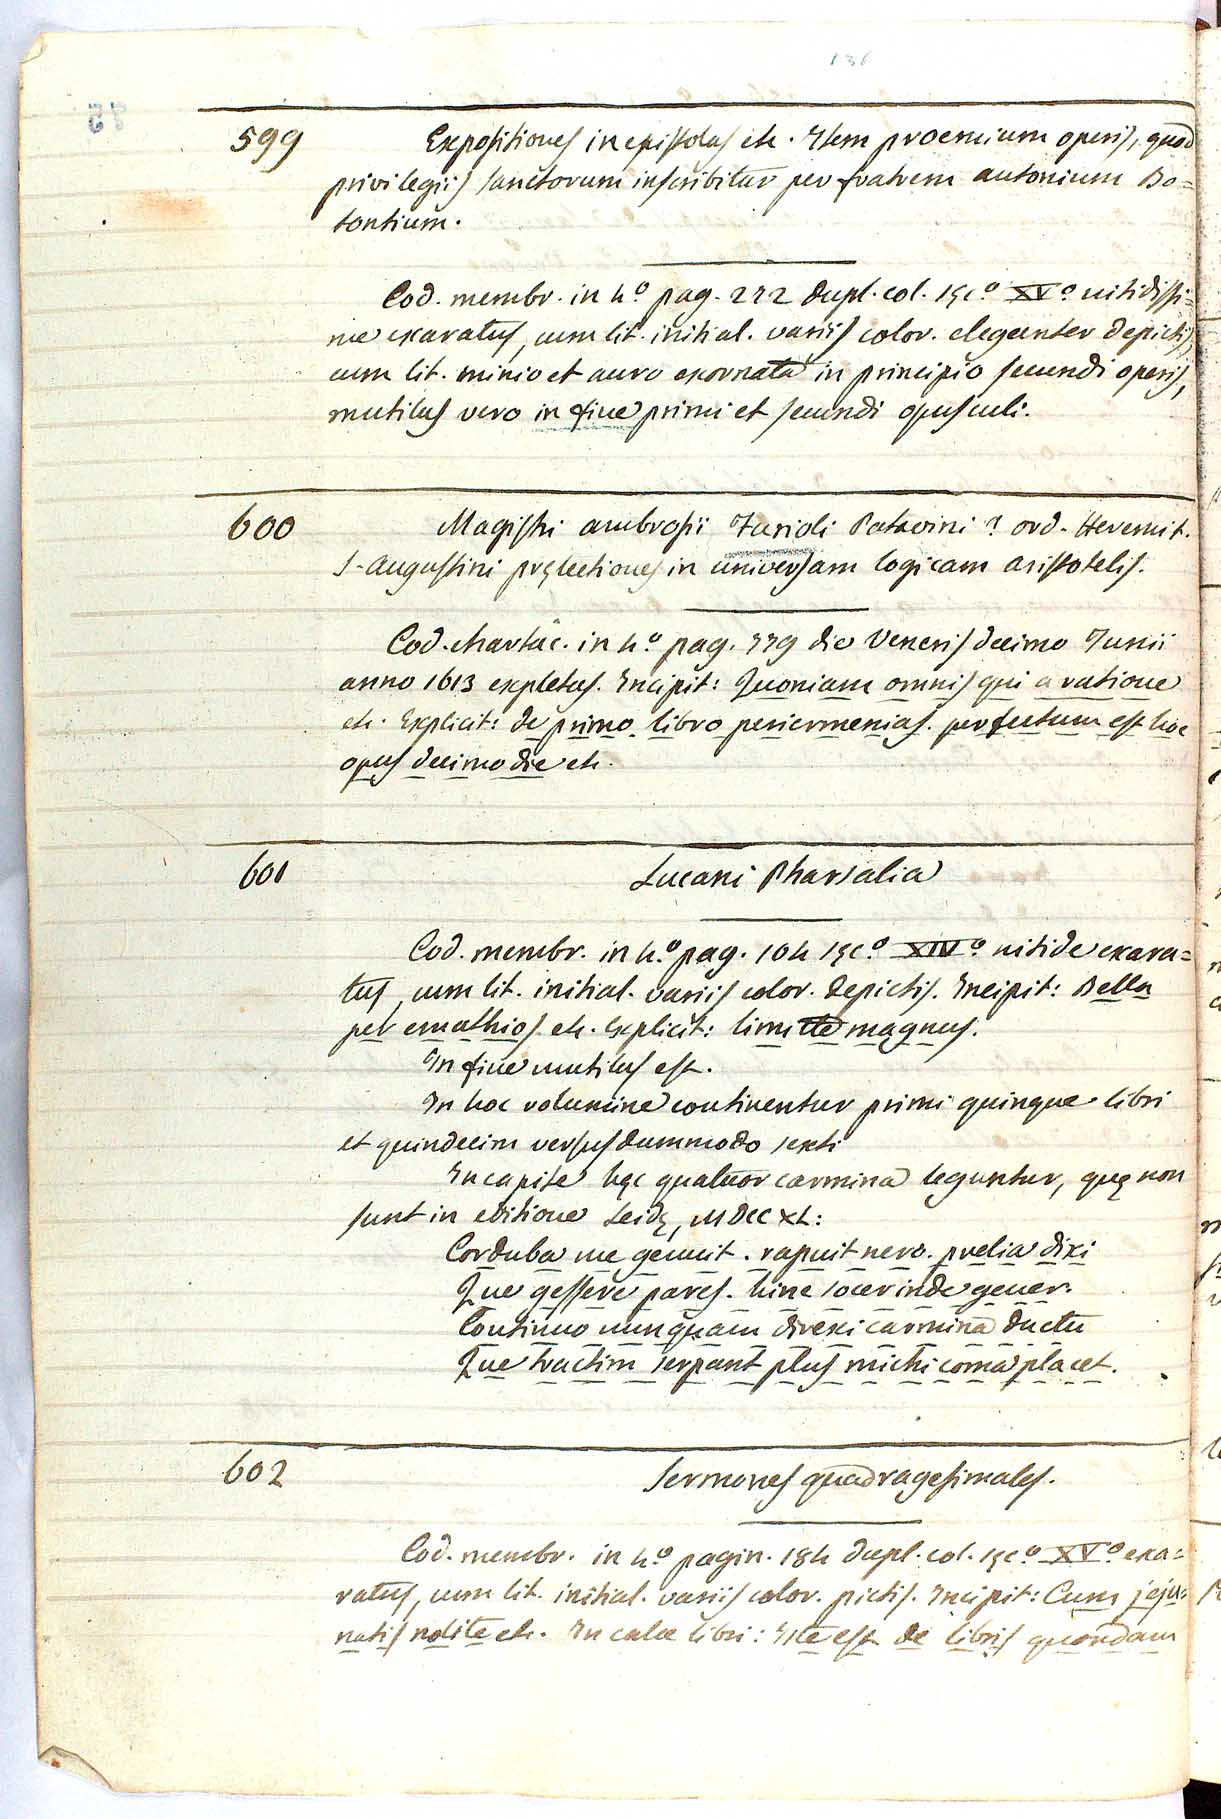 136
75
599 Expositiones in epistolas etc. Item proemium operis, quod
privilegiis sanctorum inscribitur per fratrem antonium Bo=
tontium.
Cod. membr. in 4.º pag. 272 dupl. col. sęc.º XVº nitidissi=
me exaratus, cum lit. initial. variis color. eleganter depictis,
cum lit. minio et auro exornata in principio secundi operis,
mutilus vero in fine primi et secundi opusculi.
600 Magistri ambrosii Jurioli Patavini? ord. Heremit.
S. Augustini pręlectiones in universam logicam aristotelis.
Cod. chartac. in 4.º pag. 779 die Veneris decimo Junii
anno 1613 expletus. Incipit: Quoniam omnis qui a ratione
etc. Explicit: de primo libro periermenias. perfectum est hoc
opus decimo die etc.
601 Lucani Pharsalia
Cod. membr. in 4.º pag. 104 sęc.º XIVº nitide exara=
tus, cum lit. initial. variis color. depictis. Incipit: Bella
per emathios etc. Explicit: limitte magnus.
In fine mutilus est.
In hoc volumine continentur primi quinque libri
et quindecim versus dummodo sexti
In capite hęc quatuor carmina leguntur, quę non
sunt in editione Leidę, MDCCXL:
Corduba me genuit. rapuit nero. prelia dixi
Que gessere pares. hinc socer inde gener.
Continuo nunquam direxi carmina ductu
Que tractim serpant plus michi coma placet.
602 Sermones quadragesimales.
Cod. membr. in 4.º pagin. 184 dupl. col. sęc.º XVº exa=
ratus, cum lit. initial. variis color. pictis. Incipit: Cum jeju=
natis nolite etc. In calce libri: Iste est de libris quondam